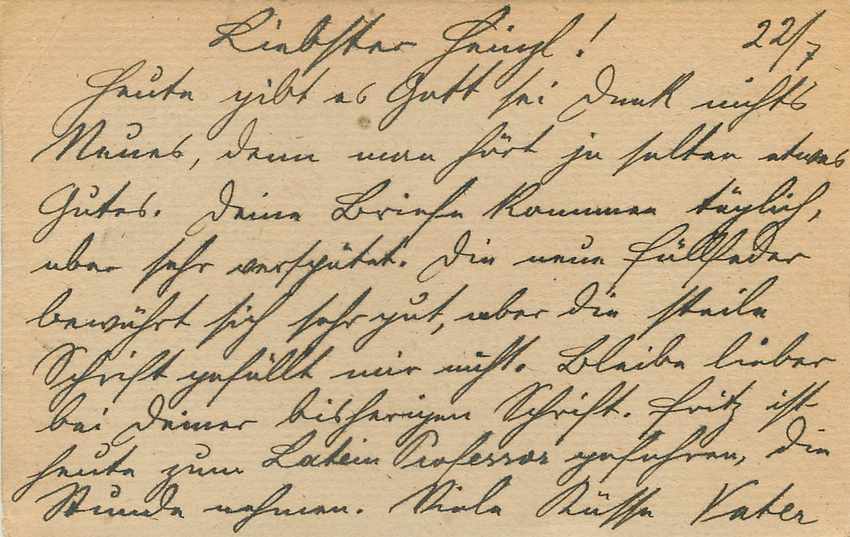 Liebster Heinzl! 22/7
Heute gibt es Gott sei Dank nichts
Neues, denn man hört ja selten etwas
Gutes. Deine Briefe kommen täglich,
aber sehr verspätet. Die neue Füllfeder
bewährt sich sehr gut, aber die steile
Schrift gefällt mir nicht. Bleibe lieber
bei Deiner bisherigen Schrift. Fritz ist
heute zum Latein Professor gefahren, die
Stunde nehmen. Viele Küsse Vater